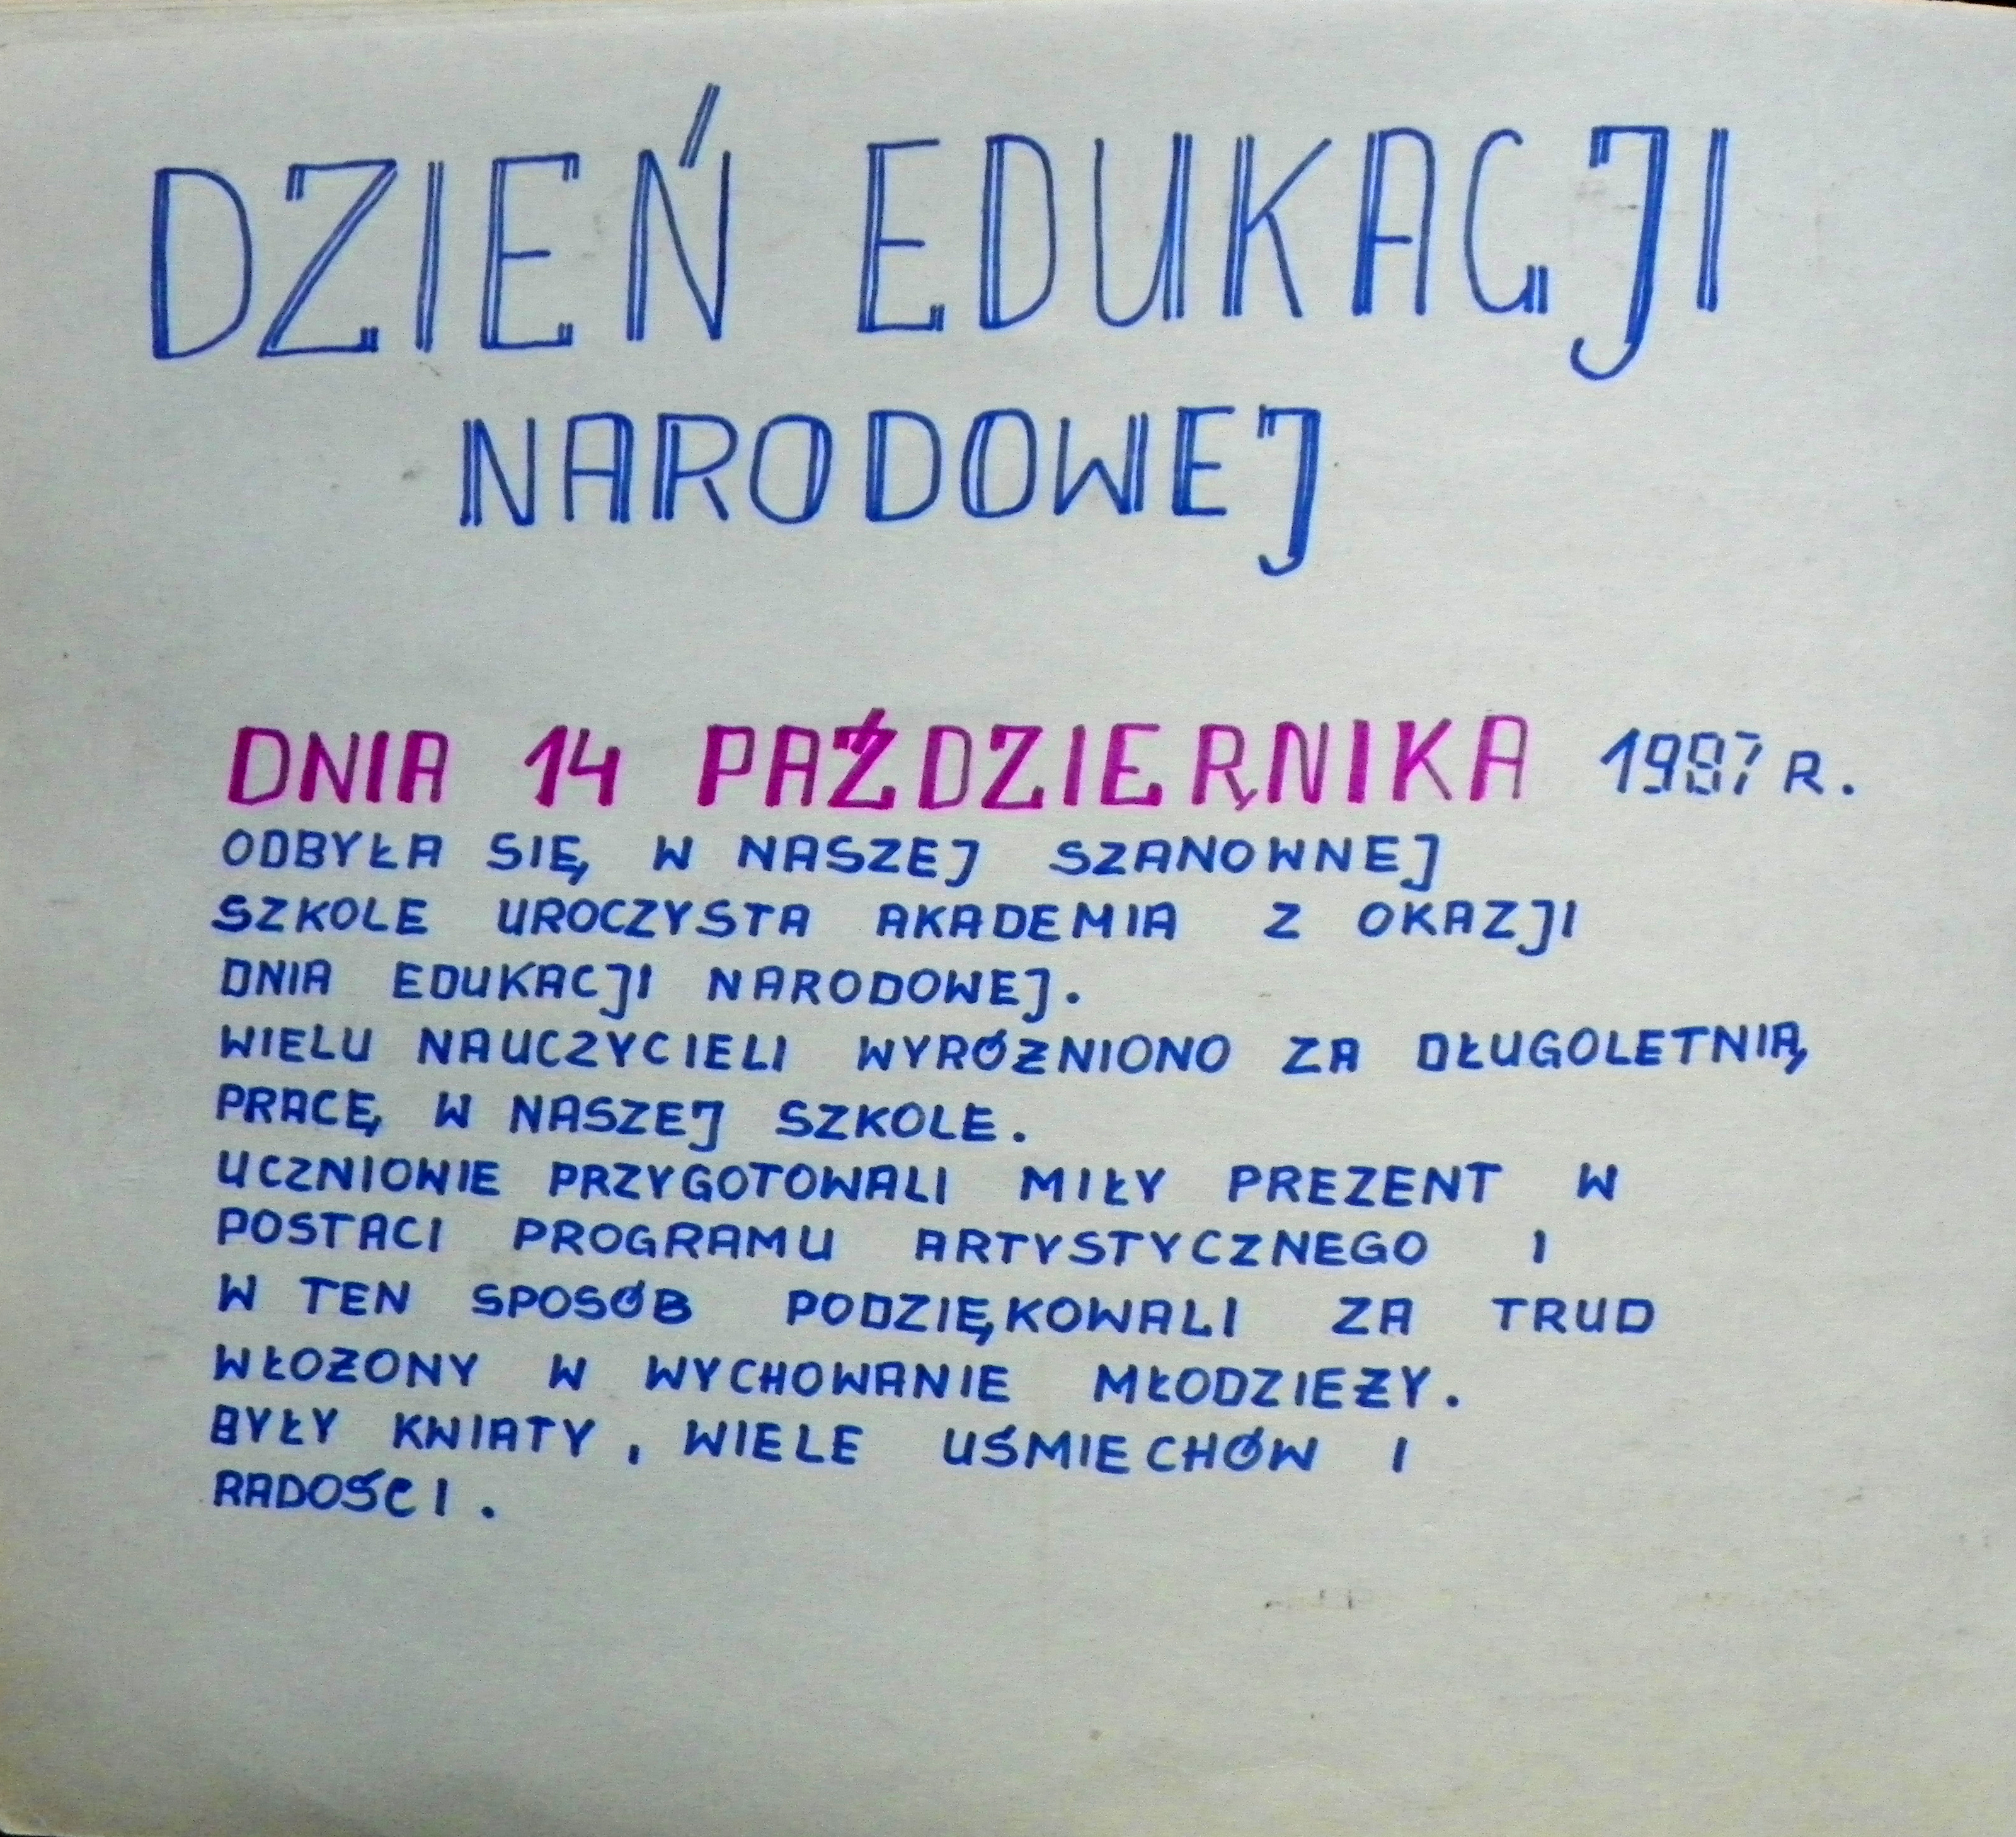 DZIEŃ EDUKACJI
NARODOWEJ
DNIA 14 PAŹDZIERNIKA 1987 R.
ODBYŁA SIĘ W NASZEJ SZANOWNEJ
SZKOLE UROCZYSTA AKADEMIA Z OKAZJI
DNIA EDUKACJI NARODOWEJ.
WIELU NAUCZYCIELI WYRÓŻNIONO ZA DŁUGOLETNIĄ
PRACĘ W NASZEJ SZKOLE.
UCZNIOWIE PRZYGOTOWALI MIŁY PREZENT W
POSTACI PROGRAMU ARTYSTYCZNEGO I
W TEN SPOSÓB PODZIĘKOWALI ZA TRUD
WŁOŻONY W WYCHOWANIE MŁODZIEŻY.
BYŁY KWIATY, WIELE UŚMIECHÓW I
RADOŚCI.